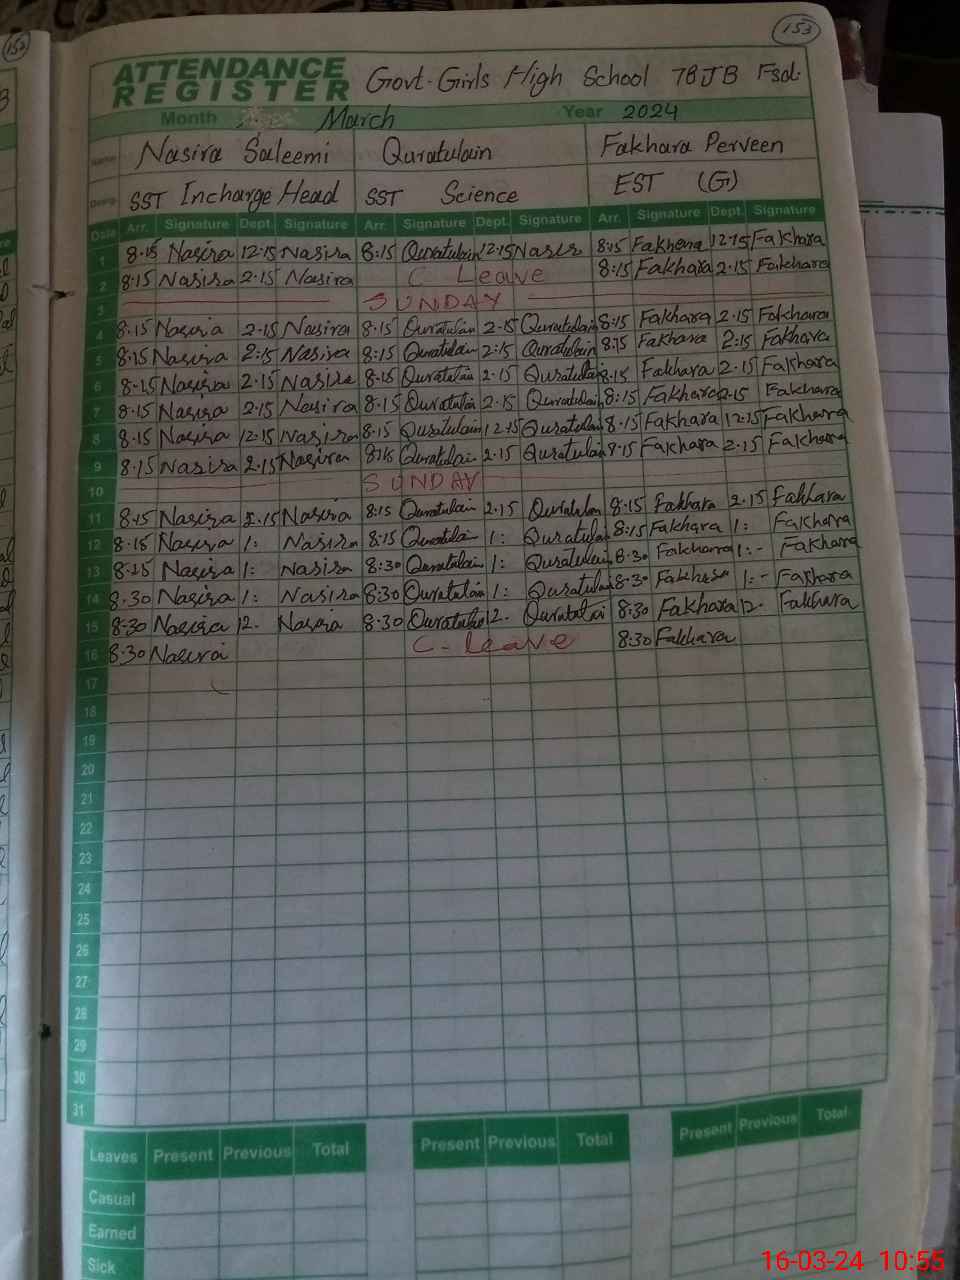 153
152
ATTENDANCE
REGISTER
Govt. Girls High School 7BJB Fsd.
Month March Year 2024
Name Nasira Saleemi Quratulain Fakhara Perveen
Desig. SST Incharge Head SST Science EST (G)
Date Arr. Signature Dept. Signature Arr. Signature Dept. Signature Arr. Signature Dept. Signature
1 8.15 Nasira 12.15 Nasira 8:15 Quratulain 12.15 8:15 Fakhara 12.15 Fakhara
2 8:15 Nasira 2.15 Nasira C Leave 8:15 Fakhara 2.15 Fakhara
3 SUNDAY
4 8.15 Nasira 2.15 Nasira 8.15 Quratulain 2.15 Quratulain 8:15 Fakhara 2.15 Fakhara
5 8.15 Nasira 2:15 Nasira 8:15 Quratulain 2:15 Quratulain 8:15 Fakhara 2:15 Fakhara
6 8.15 Nasira 2.15 Nasira 8.15 Quratulain 2.15 Quratulain 8.15 Fakhara 2.15 Fakhara
7 8.15 Nasira 2.15 Nasira 8.15 Quratulain 2.15 Quratulain 8:15 Fakhara 2.15 Fakhara
8 8.15 Nasira 12.15 Nasira 8.15 Quratulain 12.15 Quratulain 8.15 Fakhara 12.15 Fakhara
9 8.15 Nasira 2.15 Nasira 8.15 Quratulain 2.15 Quratulain 8.15 Fakhara 2.15 Fakhara
10 SUNDAY
11 8.15 Nasira 2.15 Nasira 8:15 Quratulain 2.15 Quratulain 8.15 Fakhara 2.15 Fakhara
12 8.15 Nasira 1: Nasira 8.15 Quratulain 1: Quratulain 8:15 Fakhara 1: Fakhara
13 8.15 Nasira 1: Nasira 8:30 Quratulain 1: Quratulain 8.30 Fakhara 1:- Fakhara
14 8.30 Nasira 1: Nasira 8:30 Quratulain 1: Quratulain 8.30 Fakhara 1:- Fakhara
15 8:30 Nasira 12. Nasira 8.30 Quratulain 12. Quratulain 8:30 Fakhara 12. Fakhara
16 8.30 Nasira C. Leave 8:30 Fakhara
17
18
19
20
21
22
23
24
25
26
27
28
29
30
31
Leaves Present Previous Total Present Previous Total Present Previous Total
Casual
Earned
Sick
16-03-24 10:55